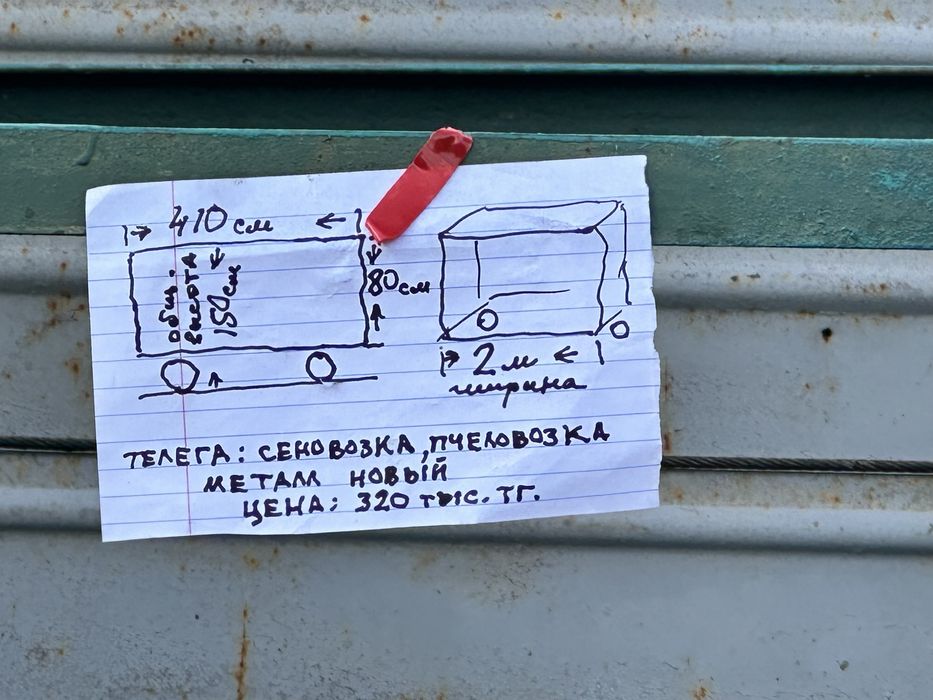 410 см
общ.
высота
150 см
80 см
2 м
ширина
ТЕЛЕГА: СЕНОВОЗКА, ПЧЕЛОВОЗКА
МЕТАЛ НОВЫЙ
ЦЕНА: 320 тыс. тг.